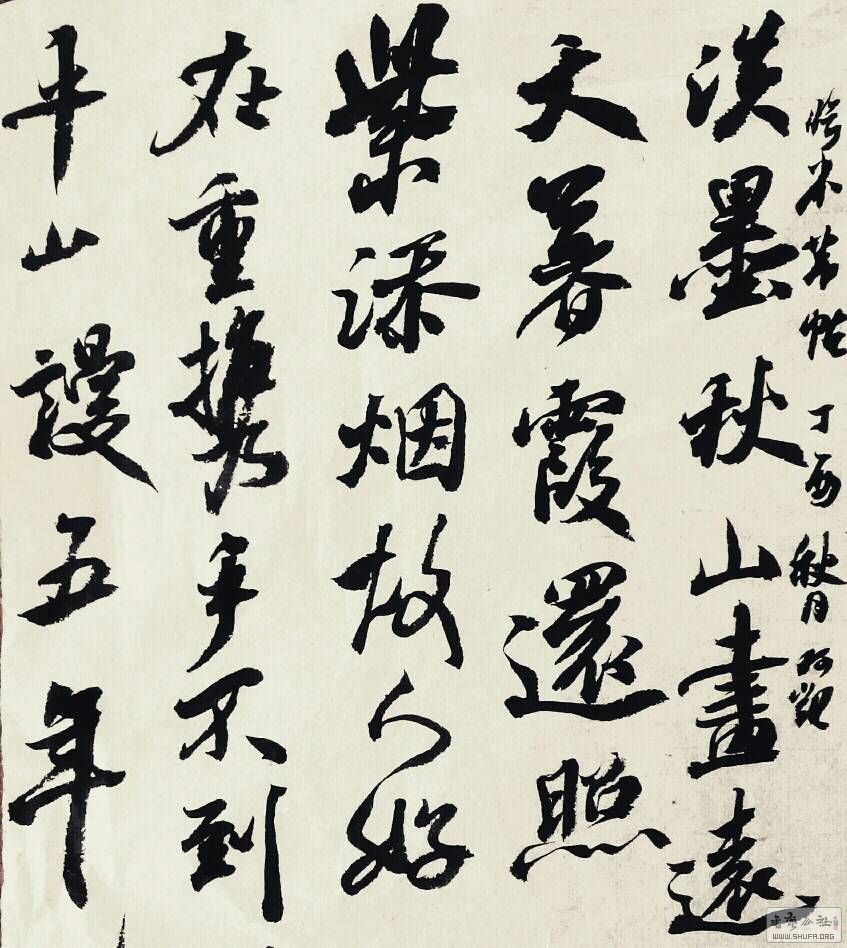 臨米芾帖 丁酉秋月
淡墨秋山畫遠
天暮霞還照
紫添烟故人好
在重攜手不到
平山謾五年
WWW.SHUFA.ORG